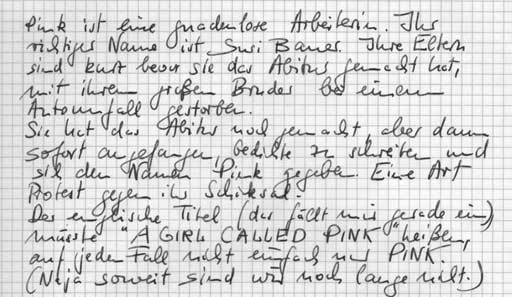 Pink ist eine gnadenlose Arbeiterin. Ihr
richtiger Name ist Susi Bauer. Ihre Eltern
sind kurz bevor sie das Abitur gemacht hat,
mit ihrem großen Bruder bei einem
Autounfall gestorben.
Sie hat das Abitur noch gemacht, aber dann
sofort angefangen, Gedichte zu schreiben und
sich den Namen Pink gegeben. Eine Art
Protest gegen ihr Schicksal.
Der englische Titel (das fällt mir gerade ein)
müsste "A GIRL CALLED PINK" heißen,
auf jeden Fall nicht einfach nur PINK.
(Naja soweit sind wir noch lange nicht.)